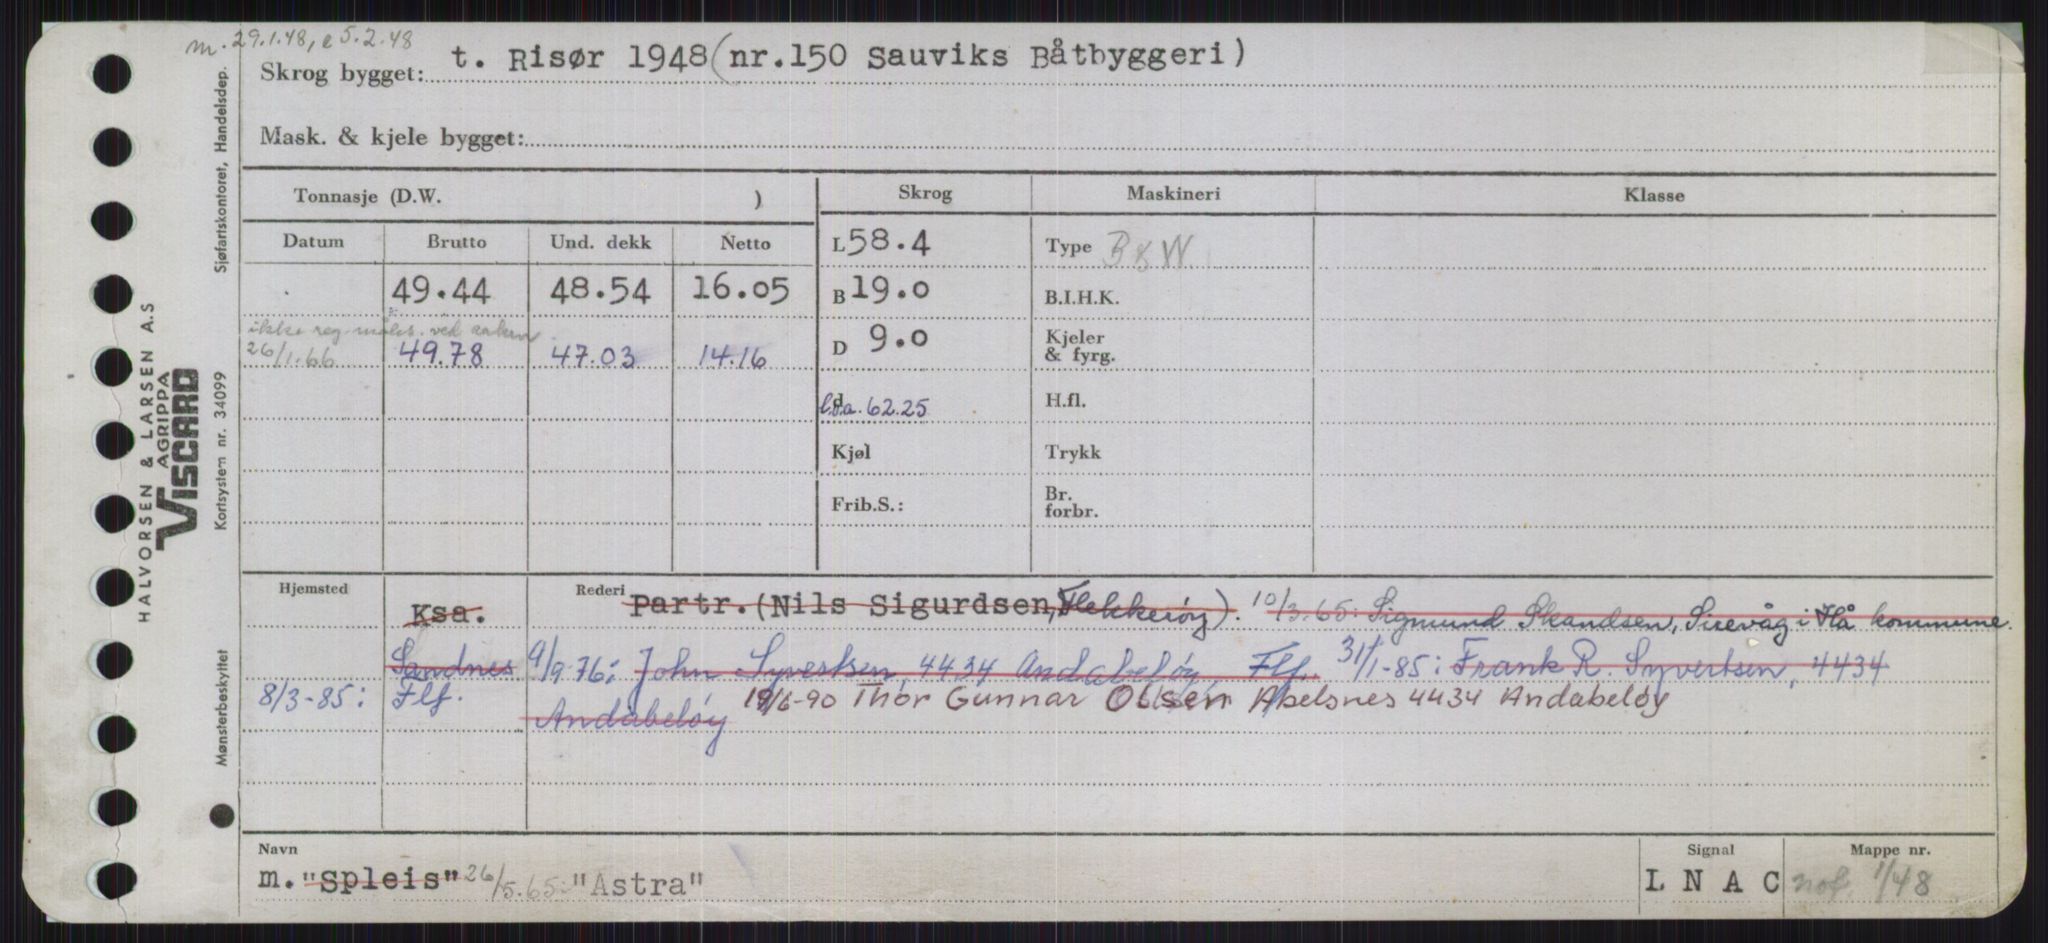 m. 29.1.48, e 5.2.48
Skrog bygget: t. Risør 1948 (nr.150 Sauviks Båtbyggeri)
Mask. & kjele bygget:
Tonnasje (D.W. )
Skrog
Maskineri
Klasse
Datum Brutto Und. dekk Netto
49.44 48.54 16.05
ikke reg. målt. ved
26/1.66 49.78 47.03 14.16
L 58.4
B 19.0
D 9.0
d
l.o.a. 62.25
Kjøl
Frib.S.:
Type B & W
B.I.H.K.
Kjeler
& fyrg.
H.fl.
Trykk
Br.
forbr.
Hjemsted
Rederi
Ksa. Partr. (Nils Sigurdsen, Flekkerøy). 10/3.65: Sigmund Skandsen, Sirevåg i Hå kommune.
Sandnes 9/9-76: John Syvertsen, 4434 Andabeløy, Flf. 31/1-85: Frank R. Syvertsen, 4434
8/3-85: Flf. Andabeløy 19/6-90 Thor Gunnar Olsen Abelsnes 4434 Andabeløy
Navn
m. "Spleis" 26/5.65: "Astra"
Signal
L N A C
Mappe nr.
nof. 1/48
HALVORSEN & LARSEN A.S
AGRIPPA
VISCARD
Sjøfartskontoret, Handelsdep.
Kortsystem nr. 34099
Mønsterbeskyttet